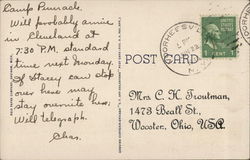 Camp Pinnacle.
Will probably arrive
in Cleveland at
7:30 P.M. standard
time next Monday.
If Stacey can stop
over here may
stay overnite here.
Will telegraph.
Chas.
VOORHEESVILLE
N.Y.
POST CARD
Mrs. C. H. Troutman,
1473 Beall St.,
Wooster, Ohio, USA.